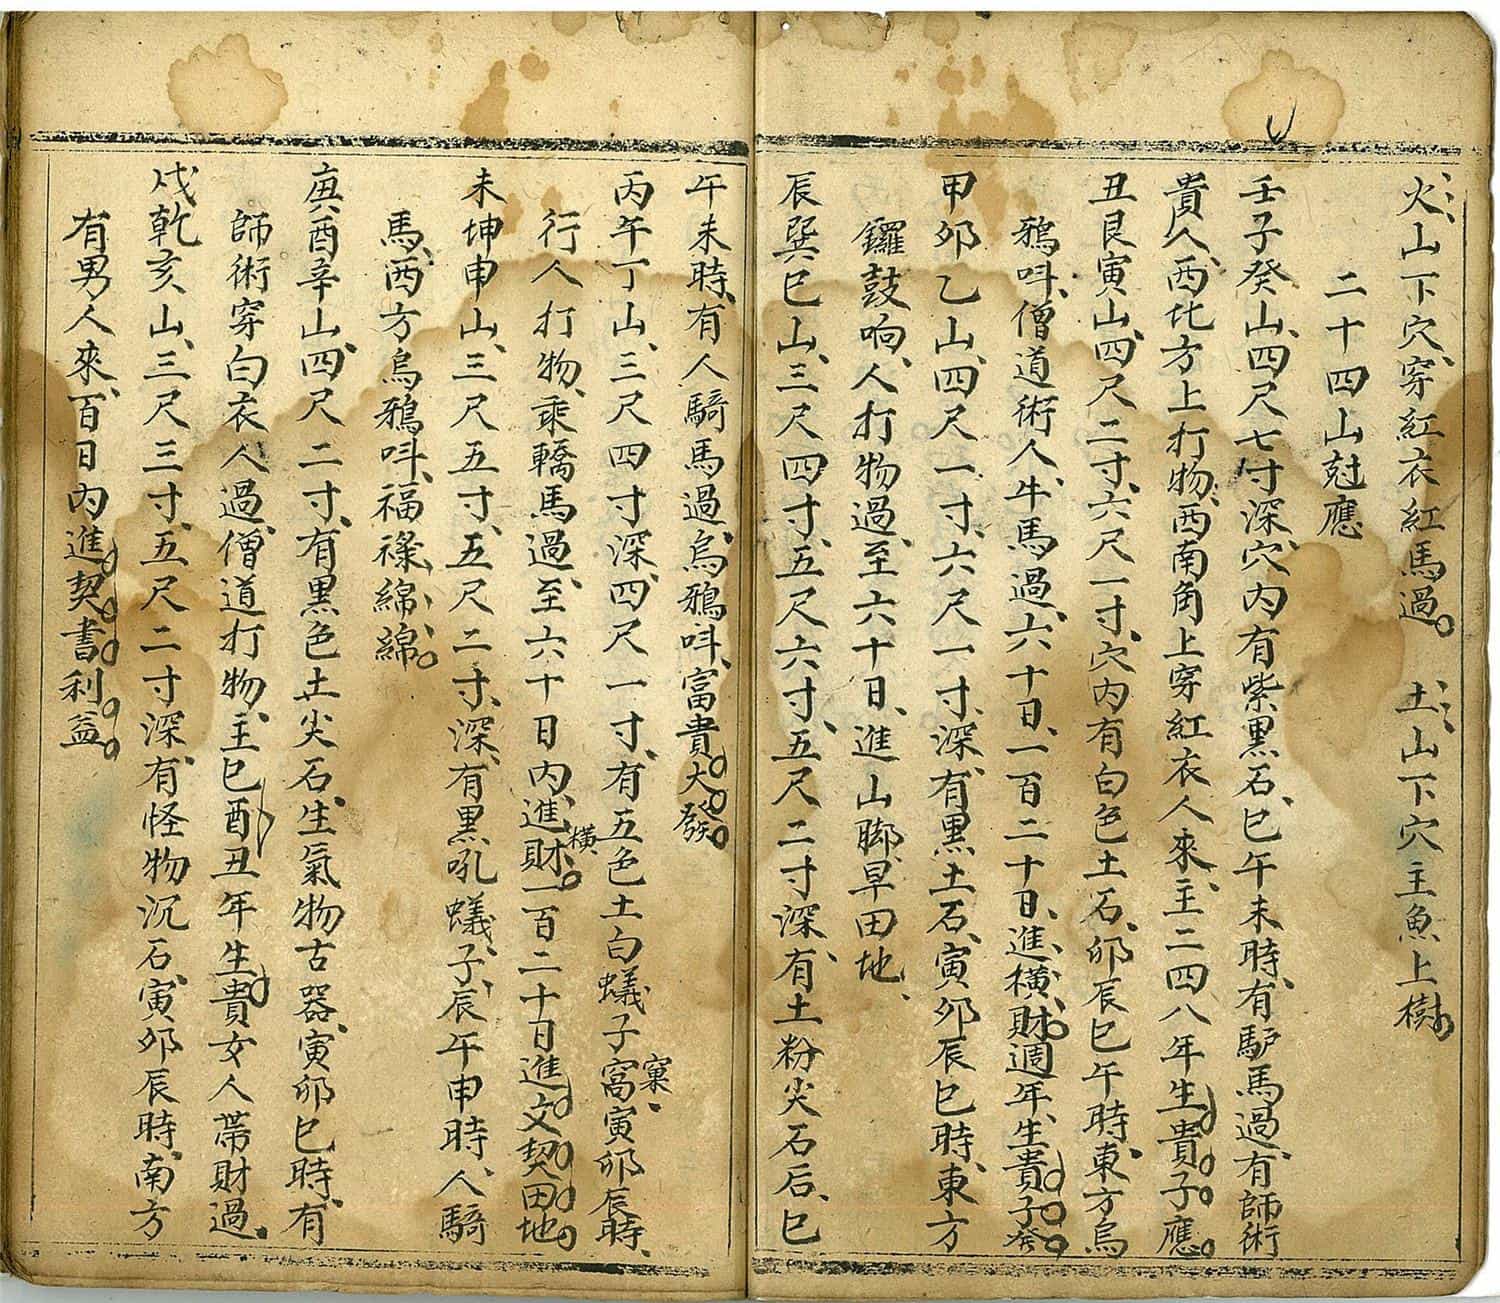 火山下穴、穿紅衣紅馬過。 土山下穴主魚上樹。
二十四山尅應
壬子癸山、四尺七寸深、穴內有紫黑石、巳午未時、有馿馬過、有師術
貴人、西北方上打物、西南角上穿紅衣人來、主二四八年生貴子應。
丑艮寅山、四尺二寸、六尺一寸、穴內有白色土石、卯辰巳午時、東方烏
鴉呌、僧道術人、牛馬過、六十日、一百二十日、進橫財、週年、生貴子發。
甲卯乙山、四尺一寸、六尺一寸、深、有黑土石、寅夘辰巳時、東方
鑼鼓响、人打物過、至六十日、進山脚、早田地、
辰巽巳山、三尺四寸、五尺六寸、五尺二寸深、有土粉尖石后、巳
午未時、有人騎馬過、烏鴉呌、富貴大發。
丙午丁山、三尺四寸深、四尺一寸、有五色土白蟻子窩窠、寅卯辰時、
行人打物、乘轎馬過、至六十日內、進橫財。一百二十日進文契田地。
未坤申山、三尺五寸、五尺二寸、深、有黑吼蟻、子、辰午申時、人騎
馬、西方烏鴉呌、福祿、綿、綿。
庚酉辛山、四尺二寸、有黑色土尖石、生氣物古器、寅卯巳時、有
師術穿白衣人過、僧道打物、主巳酉丑年生貴女人帶財過、
戌乾亥山、三尺三寸、五尺二寸深、有怪物沉石、寅夘辰時、南方
有男人來、百日內進契書利益。